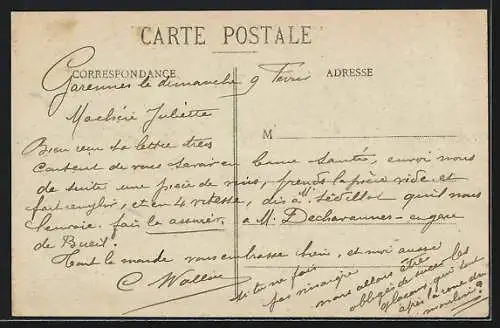 CARTE POSTALE
CORRESPONDANCE
ADRESSE
M
Garennes le dimanche 9 Février
Ma chère Juliette
Bien reçu ta lettre très
content de vous savoir en bonne santé, envoi nous
de suite une pièce de vins, prends la pièce vide et
fait emplir, et en 4 vitesse, dis à M. Sédillot qu'il nous
l'envoie. fais la assurer. a Mr Dechavannes en gare
de Bueil.
Tout le monde vous embrasse bien, et moi aussi
C Wallin
si tu ne fais
pas
nous allons être
obligés de sucer les
glaçons, qui sont
après la roue du
moulin